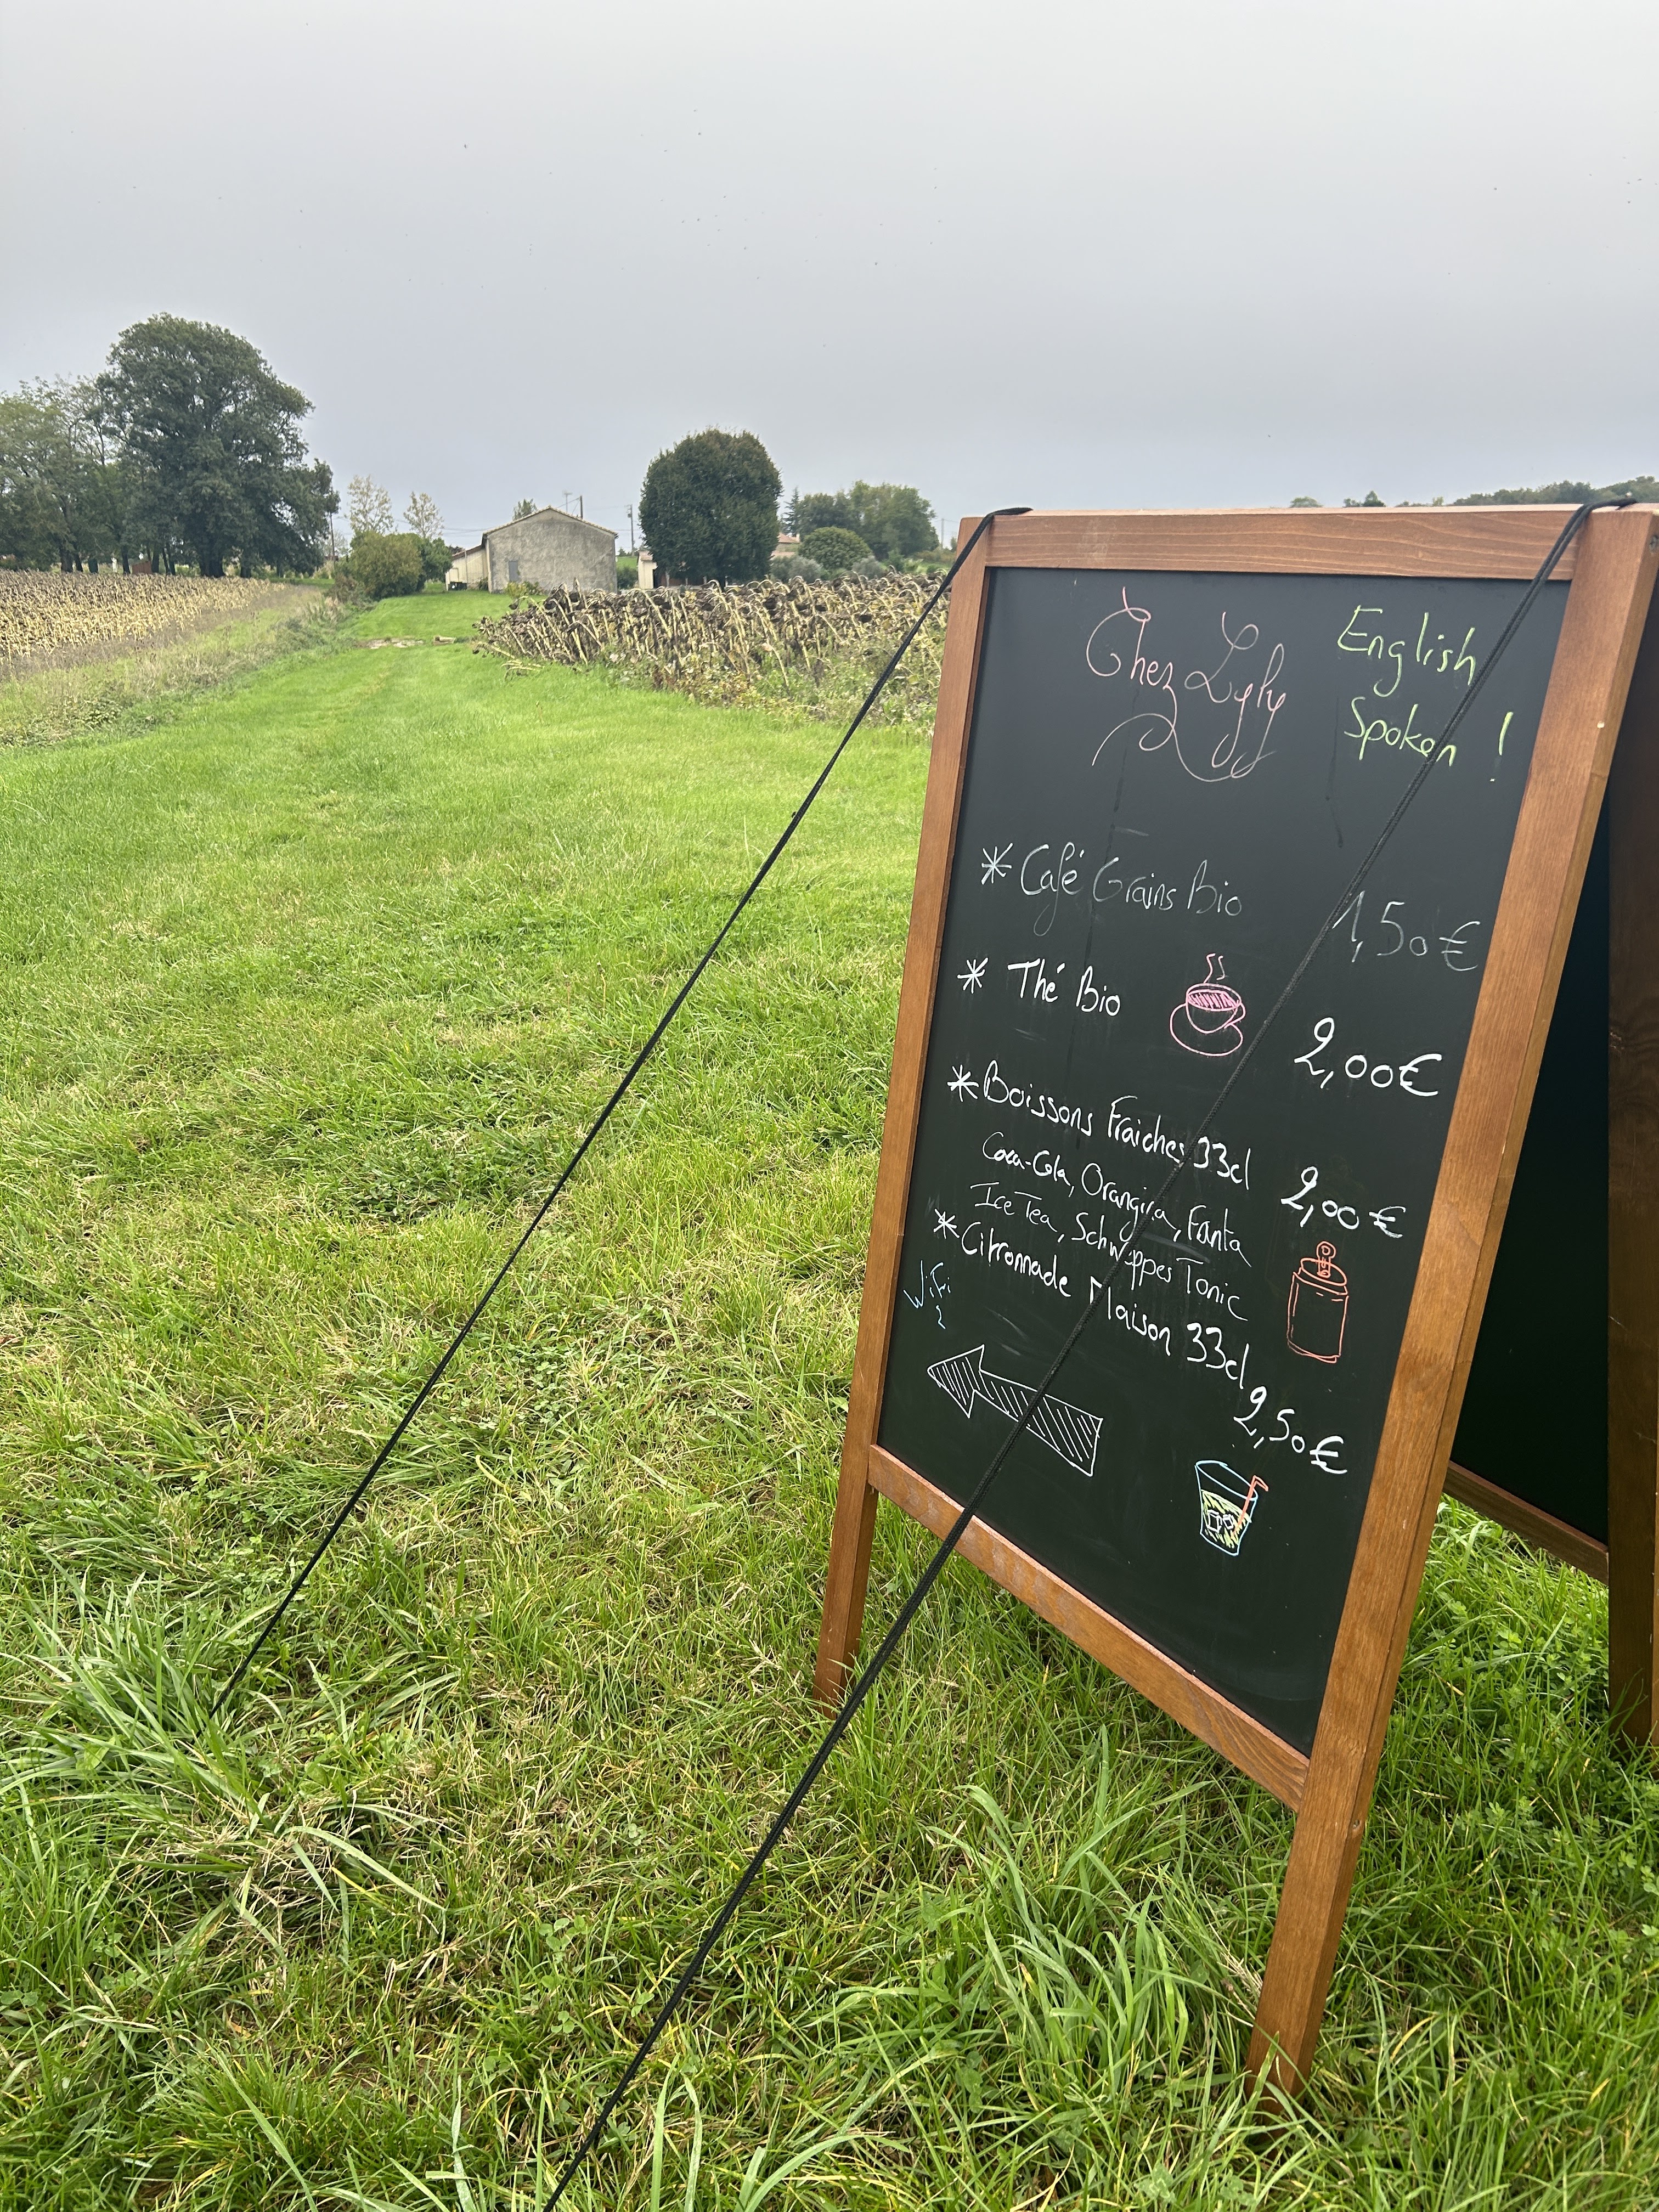 Chez Lyly
English
Spoken !
* Café Grains Bio 1,50€
* Thé Bio 2,00€
* Boissons Fraiches 33cl 2,00€
Coca-Cola, Orangina, Fanta
Ice Tea, Schweppes Tonic
* Citronnade Maison 33cl 2,50€
WiFi